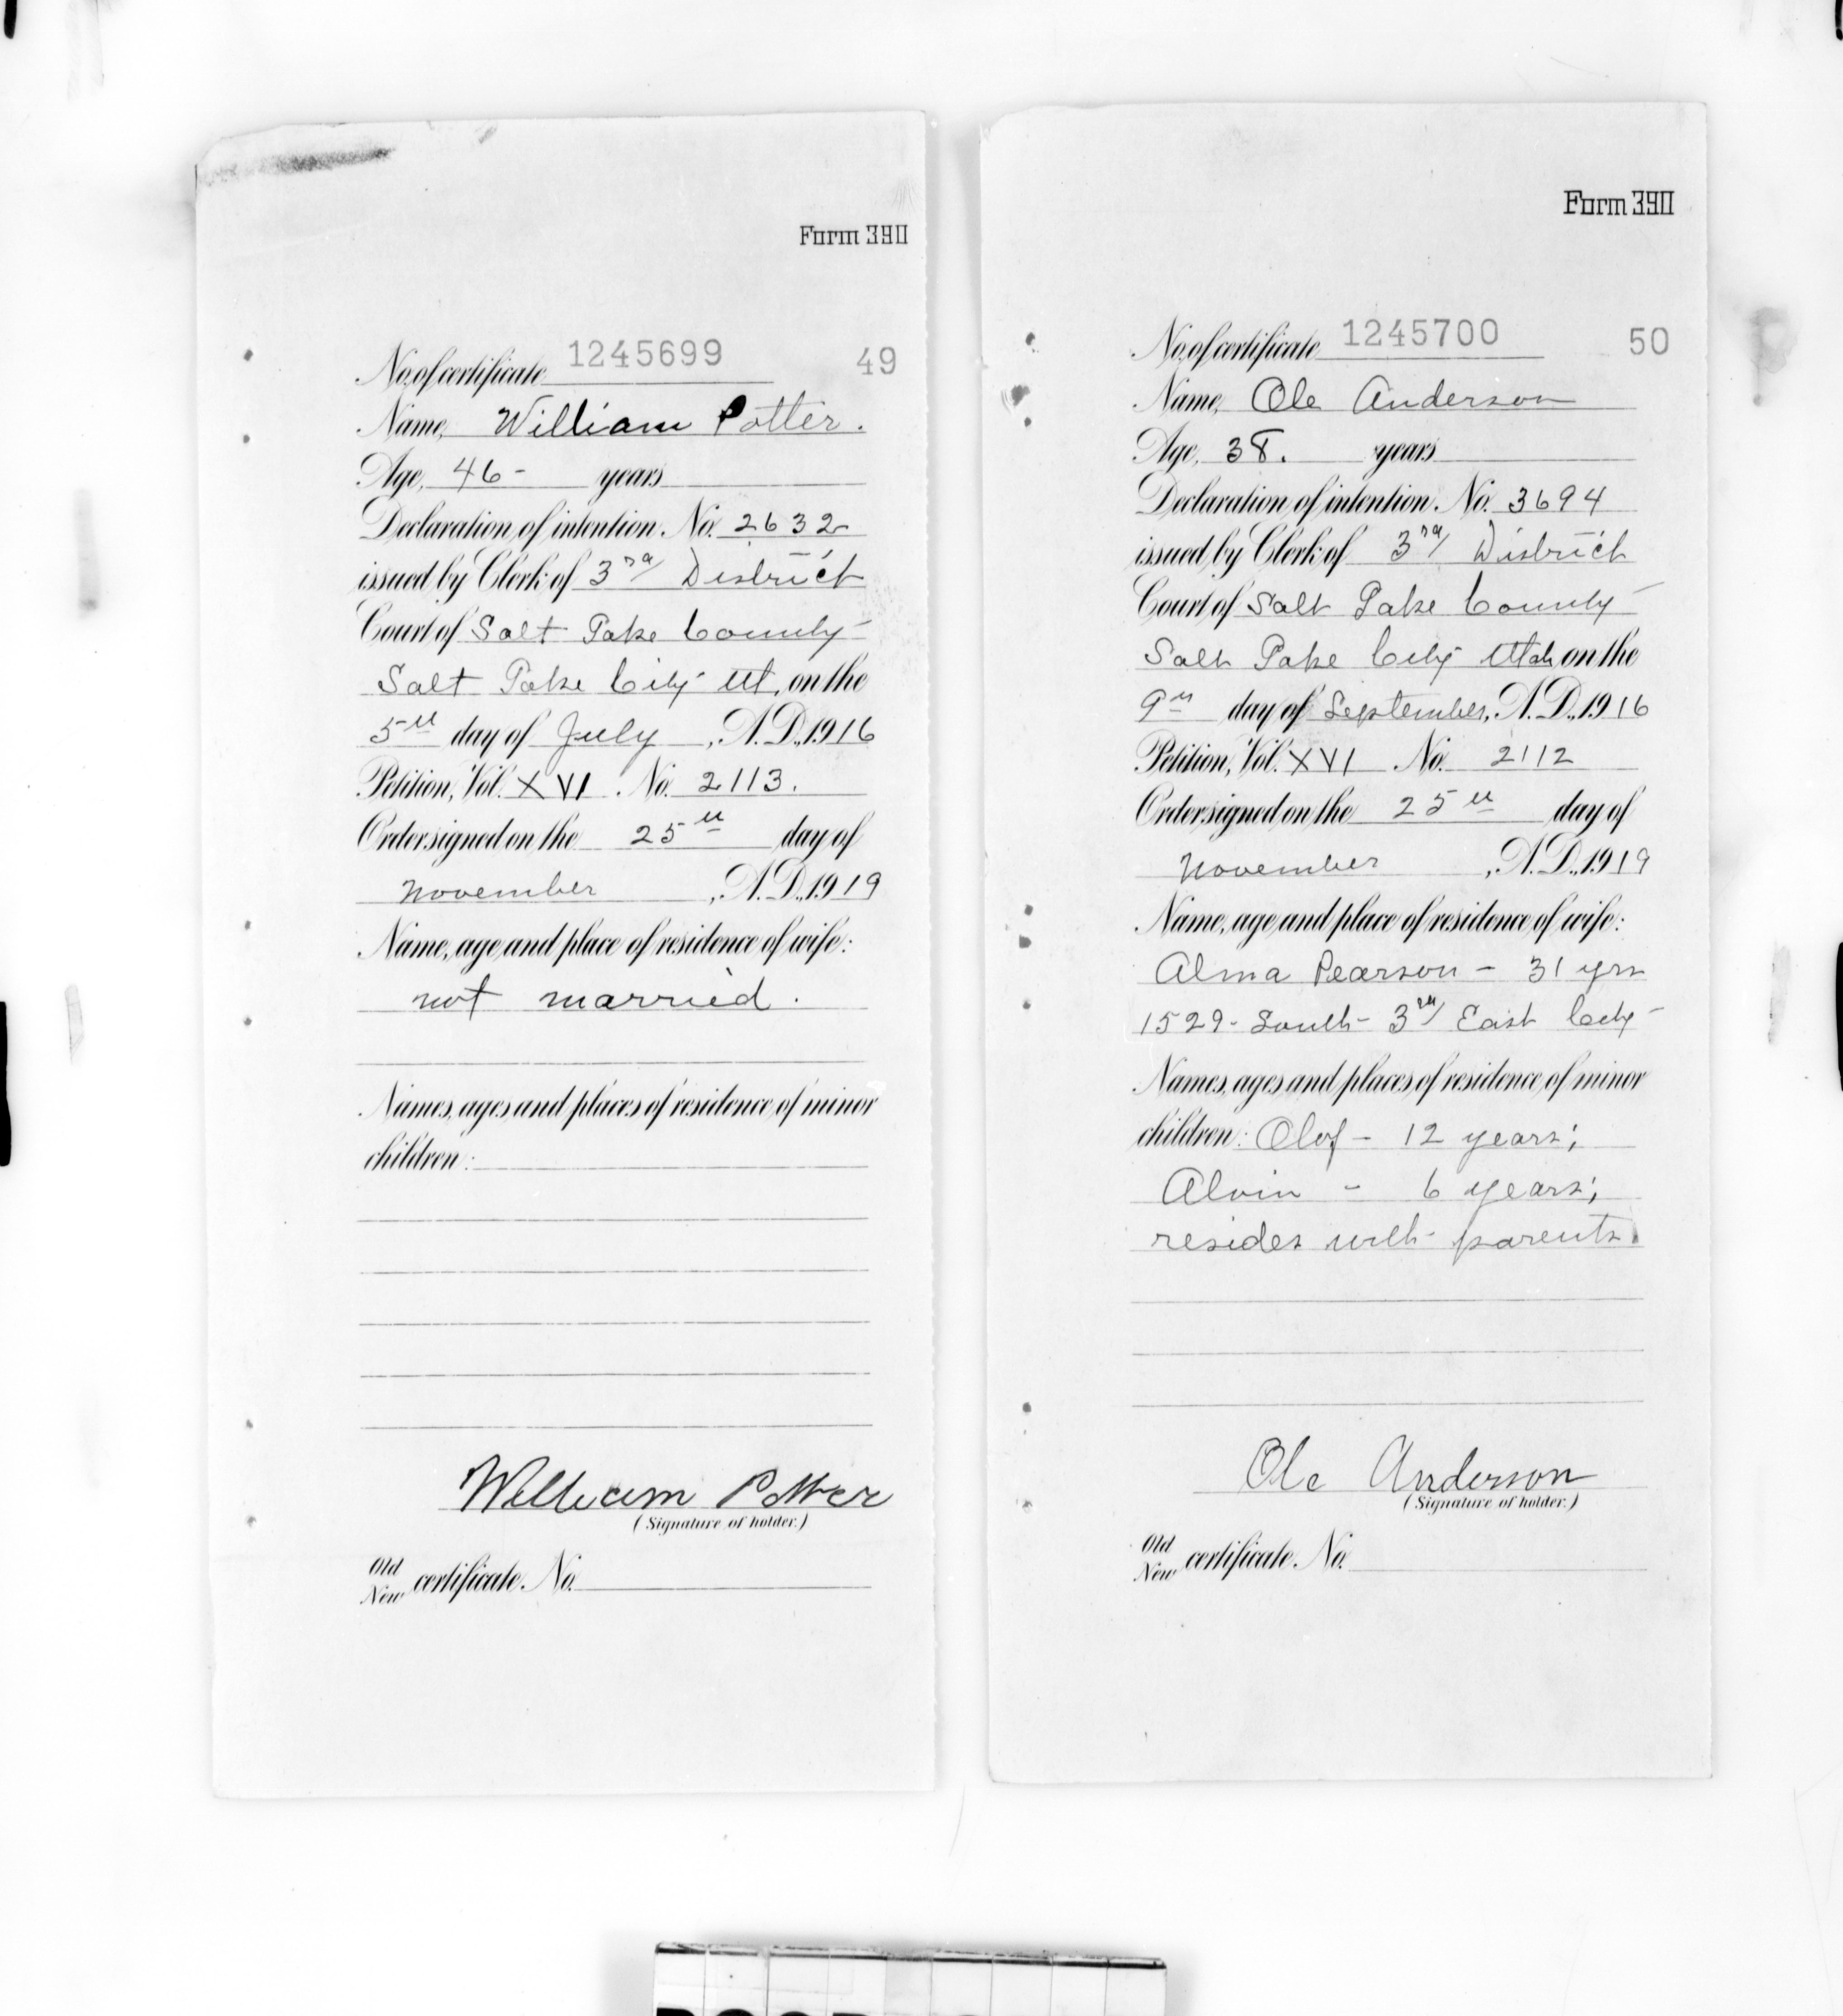 Form 390
No. of certificate 1245699 49
Name, William Potter.
Age, 46 - years
Declaration of intention. No. 2632
issued by Clerk of 3rd District
Court of Salt Lake County
Salt Lake City Ut, on the
5th day of July, A.D., 1916
Petition, Vol. XVI No. 2113.
Order signed on the 25th day of
November, A.D., 1919
Name, age and place of residence of wife:
not married.
Names, ages and places of residence of minor
children:
William Potter
(Signature of holder.)
Old
New certificate. No.
Form 390
No. of certificate 1245700 50
Name, Ole Anderson
Age, 38. years
Declaration of intention. No. 3694
issued by Clerk of 3rd District
Court of Salt Lake County
Salt Lake City Utah on the
9th day of September, A.D., 1916
Petition, Vol. XVI No. 2112
Order signed on the 25th day of
November, A.D., 1919
Name, age and place of residence of wife:
Alma Pearson - 31 yrs
1529 - South - 3rd East City
Names, ages and places of residence of minor
children: Olof - 12 years;
Alvin - 6 years;
resides with parents.
Ole Anderson
(Signature of holder.)
Old
New certificate. No.